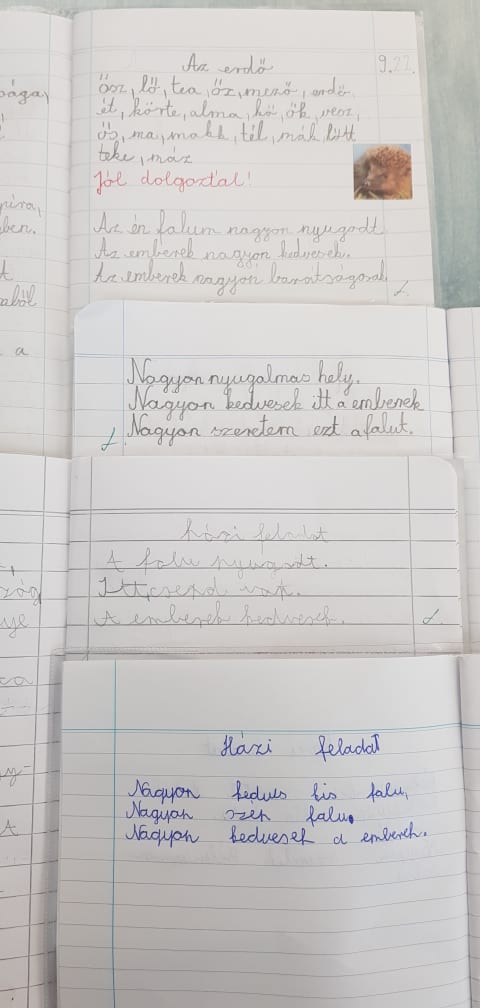 Az erdő
9.22.
ősz, lő, tea, őz, mező, erdő
ét, körte, alma, hő, ők, vesz,
ős, ma, makk, tél, mák, lőtt
teke, máz
Jól dolgoztál!
Az én falum nagyon nyugodt
Az emberek nagyon kedvesek.
Az emberek nagyon barátságosak
Nagyon nyugalmas hely.
Nagyon kedvesek itt a embenek
Nagyon szeretem ezt a falut.
házi feladat
A falu nyugodt.
Itt csend van.
A emberek kedvesek.
Házi feladat
Nagyon kedves kis falu,
Nagyon szep falu.
Nagyon kedvesek a emberek.
ben.
a
zóg
ye
ca
A